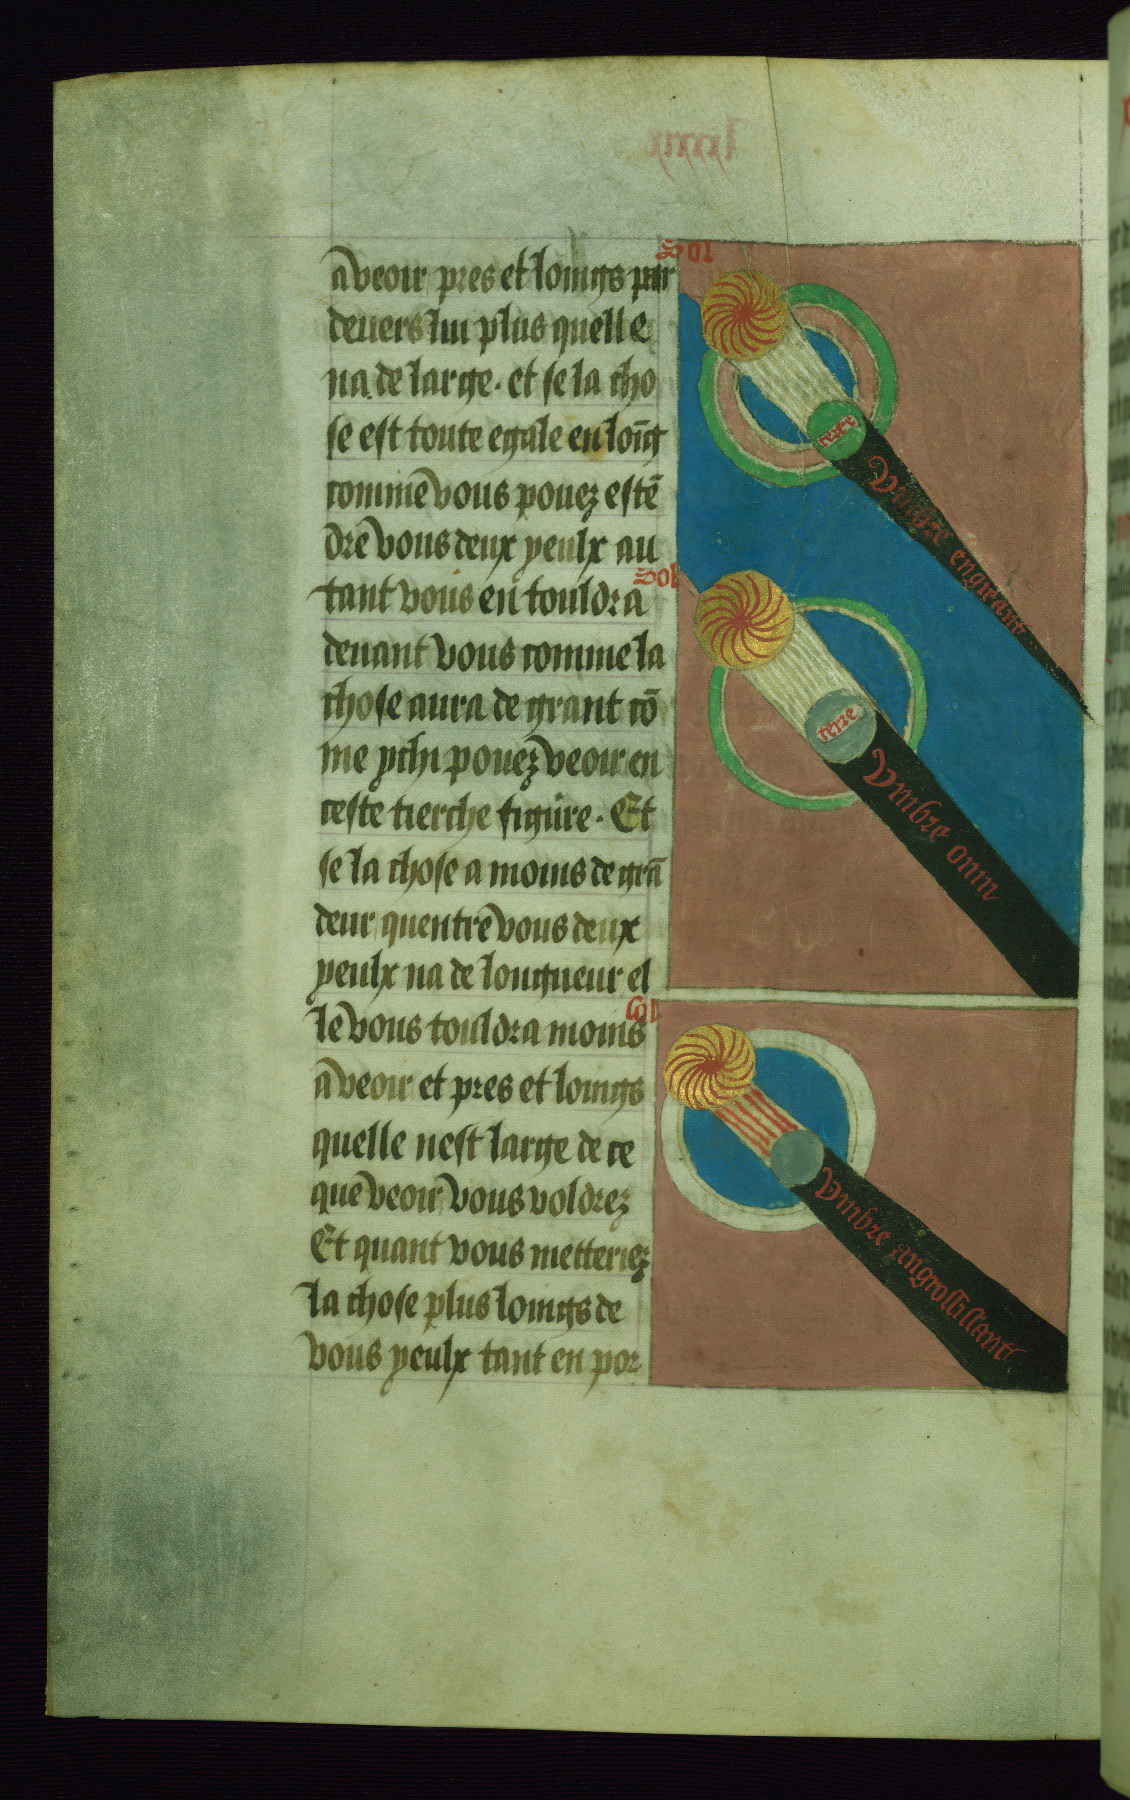 Sol
a veoir pres et loingz par
deuers lui plus quelle
na de large. et se la cho
se est toute egale en lōg
comme vous pouez estē
dre vous deux yeulx au
Sol
tant vous en touldra
deuant vous comme la
chose aura de grant cō
me ychi pouez veoir en
ceste tierche figure. Et
se la chose a moins de grā
deur quentre vous deux
yeulx na de longueur el
Sol
le vous touldra moins
a veoir et pres et loings
quelle nest large de ce
que veoir vous voldrez
Et quant vous metteriez
la chose plus loings de
vous yeulx tant en por
terre
Vmbre
terre
Vmbre onni
Vmbre angrossissant